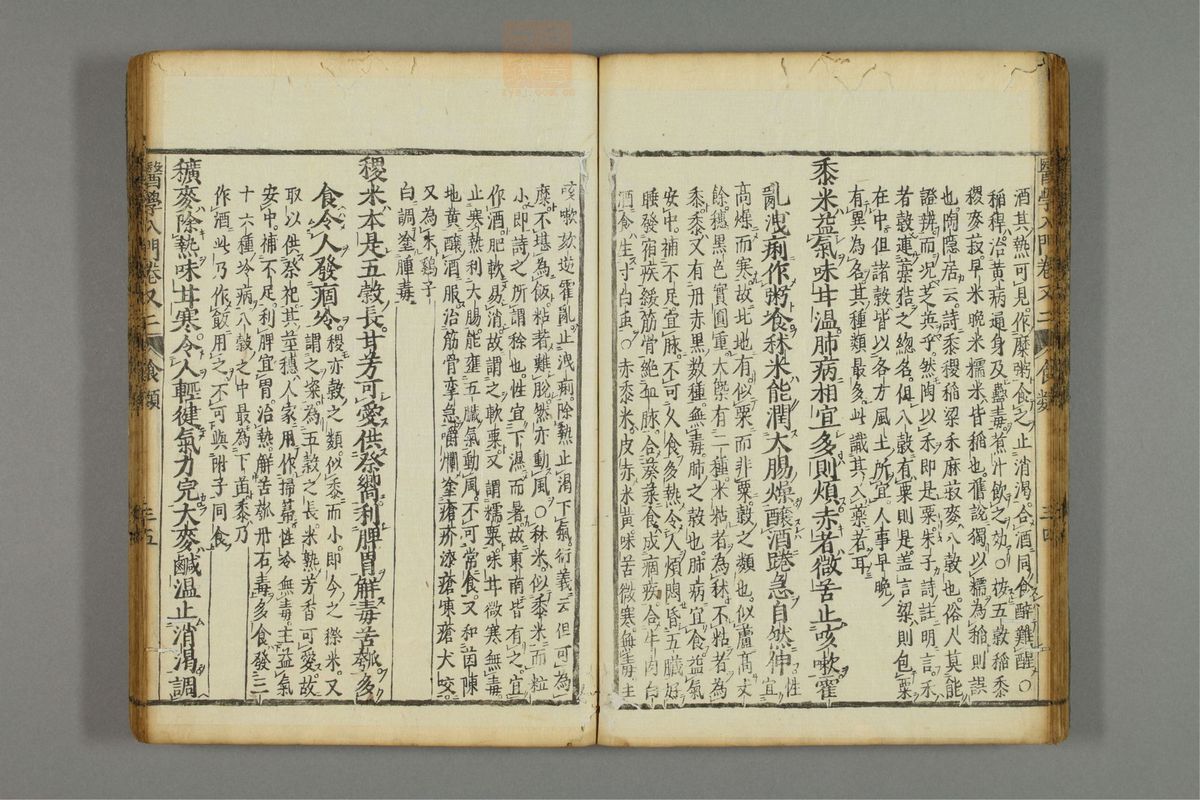 酒其熱可見。作糜粥食之止消渴。合酒同食醉難醒。○
稲稈治黄病通身及蠱毒煮汁飲之効。○按五穀稲黍
稷麥菽。早米晩米糯米皆稲也。舊說獨以糯為稲則誤
也陶隱居云。詩黍稷稲梁禾麻菽麥八穀也。俗人莫能
證辨而况芝英乎。然陶以禾即是粟。朱子詩註明言禾
者穀連藁秸之總名。但八穀有粟則是。盖言梁則包粟
在中。但諸穀皆以各方風土所宜人事早晩
有異為名。其種類最多。此識其入藥者耳
黍米益氣味甘温肺病相宜多則煩赤者微苦止咳嗽霍
亂洩痢作粥飡秫米能潤大腸燥醸酒踡急自然伸 性宜
高燥而寒故北地有似粟而非粟穀之類也。似蘆高丈
餘穗黒色實圓重大槩有二種米粘者為秫不粘者為
黍。黍又有丹赤黒數種。無毒。肺之穀也肺病宜食益氣
安中。補不足宜脉不可久食多熱令人煩悶昏五臓好
睡發宿疾緩筋骨絶血脉合葵菜食成痼疾合牛肉白
酒食生寸白虫。○赤黍米。皮赤米黄味苦微寒無毒主
醫學入門卷又二 食類 三四
咳嗽欬逆霍亂止洩痢除熱止渴下氣衍義云但可為
糜不堪為飯粘着難脱然亦動風○秫米似黍米而粒
小。即詩之所謂稌也。性宜下濕而暑故東南皆有之宜
作酒肥軟易消故謂之軟粟又謂糯粟味甘微寒無毒
止寒熱利大腸能壅五臓氣動風。不可常食又和茵陳
地黄醸酒服治筋骨攣急嚼爛塗瘡疥漆瘡凍瘡犬咬。
又為末鷄子
白調塗腫毒
稷米本是五穀長甘芳可愛供祭嚮利脾胃解毒苦瓠多
食令人發痼冷 稷亦穀之類似黍而小即今之穄米。又
謂之粢為五穀之長米熟芳香可愛故
取以供祭祀其莖穗人家用作掃蒂性冷無毒主益氣
安中。補不足。利脾宜胃治熱解苦瓠丹石毒多食發三
十六種冷病八穀之中最為下苗黍乃
作酒此乃作飯用之不可與附子同食
穬麥除熱味甘寒令人輕徤氣力完大麥鹹温止消渴調
醫學入門卷又二 食類 三五